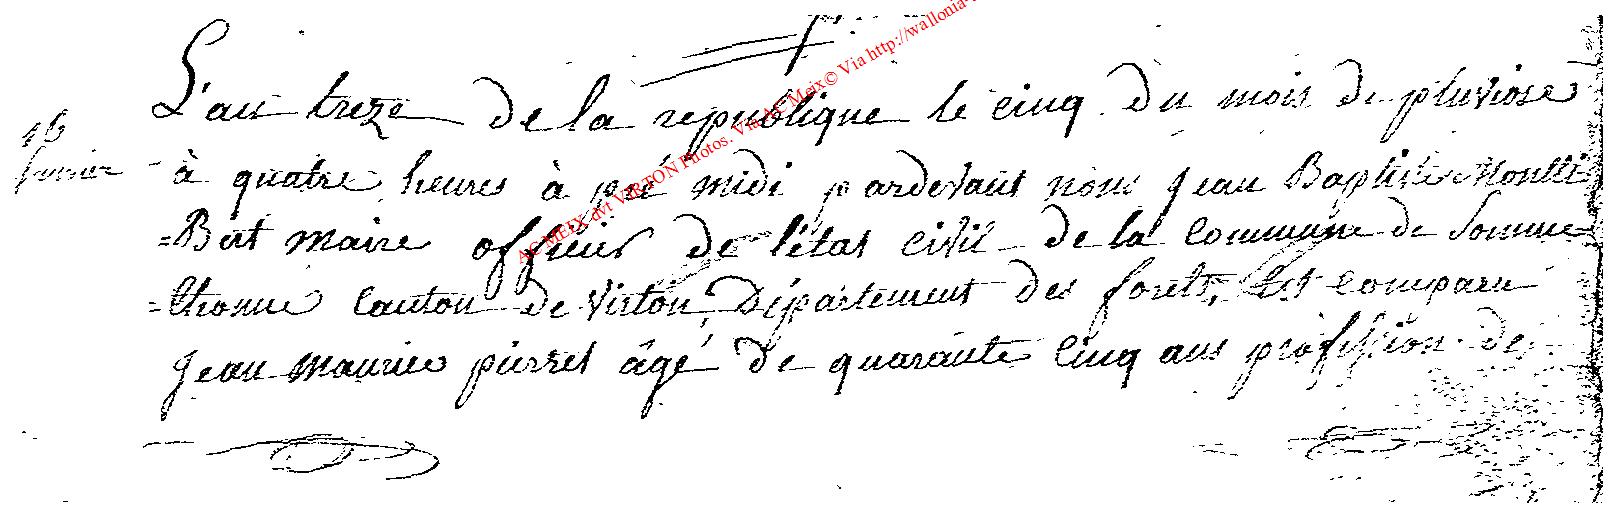 L'an treze de la republique le cinq du mois de pluviose
16
fevrier
à quatre heures à pré midi pardevant nous Jean Baptiste Monlli
=Bert maire officier de l'état civil de la commune de Somme
=thonne canton de Virton, Département des forets, Est comparu
Jean maurice pierret âgé de quarante cinq ans profession de
AC MEIX dvt VIRTON Photos. Via AC Meix© Via http://wallonia-